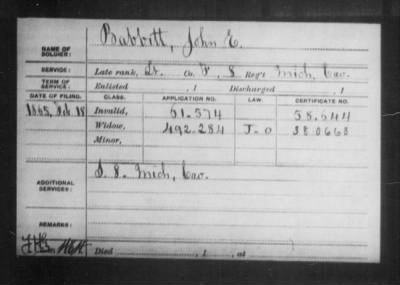 Babbitt, John E.
NAME OF SOLDIER:
SERVICE: Late rank, Lt. Co. F, 8 Reg't Mich, Cav.
TERM OF SERVICE: Enlisted , 1 Discharged , 1
DATE OF FILING. CLASS. APPLICATION NO. LAW. CERTIFICATE NO.
1865, Feb 18 Invalid, 61.574 58.644
Widow, 492.284 J-O 380663
Minor,
ADDITIONAL SERVICES: Mich, Cav.
REMARKS:
Died , 1 , at